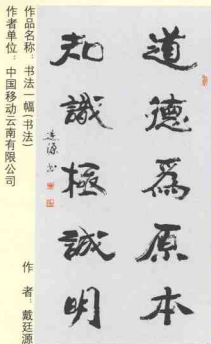 道德為原本
知識極誠明
廷源书
作品名称：书法一幅(书法)
作者单位：中国移动云南有限公司
作　者：戴廷源